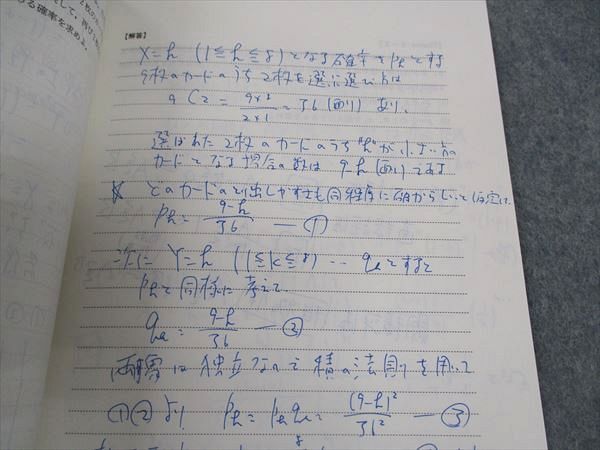 【解答】
X=k (1≦k≦8) となる確率をPkとする
9枚のカードのうち2枚を選ぶ選び方は
9C2 = 9×8/2×1 = 36 (通り) あり、
選ばれた2枚のカードのうち"k"が小さい方の
カードとなる場合の数は 9-k (通り) である
※ どのカードの取り出しやすさも同程度に確からしいと仮定し、
Pk = 9-k/36 ― ①
次に Y=k (1≦k≦8) … qkとすると
Pkと同様に考えて
qk = 9-k/36 ― ②
両事象は独立なので積の法則を用いて
①②より Pk = Pk qk = (9-k)²/36² ― ③
8